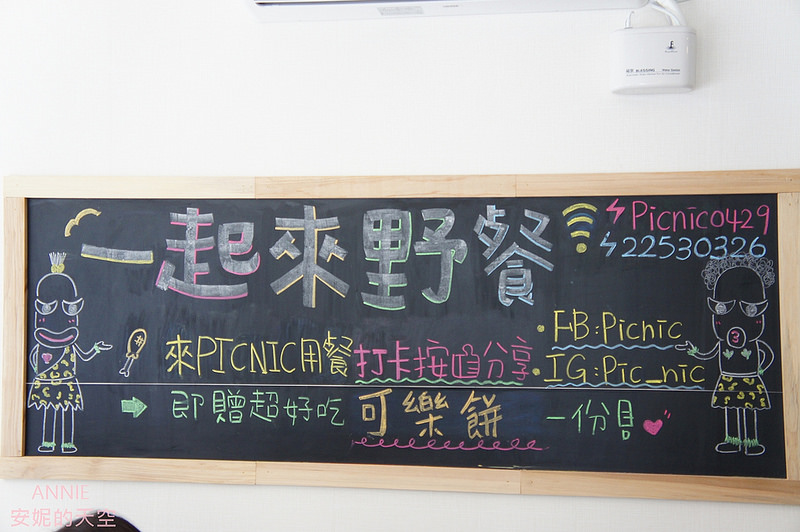 一起來野餐
Picnic0429
22530326
來PICNIC用餐打卡按讚分享
FB:Picnic
IG:Pic_nic
即贈超好吃可樂餅一份
ANNIE
安妮的天空